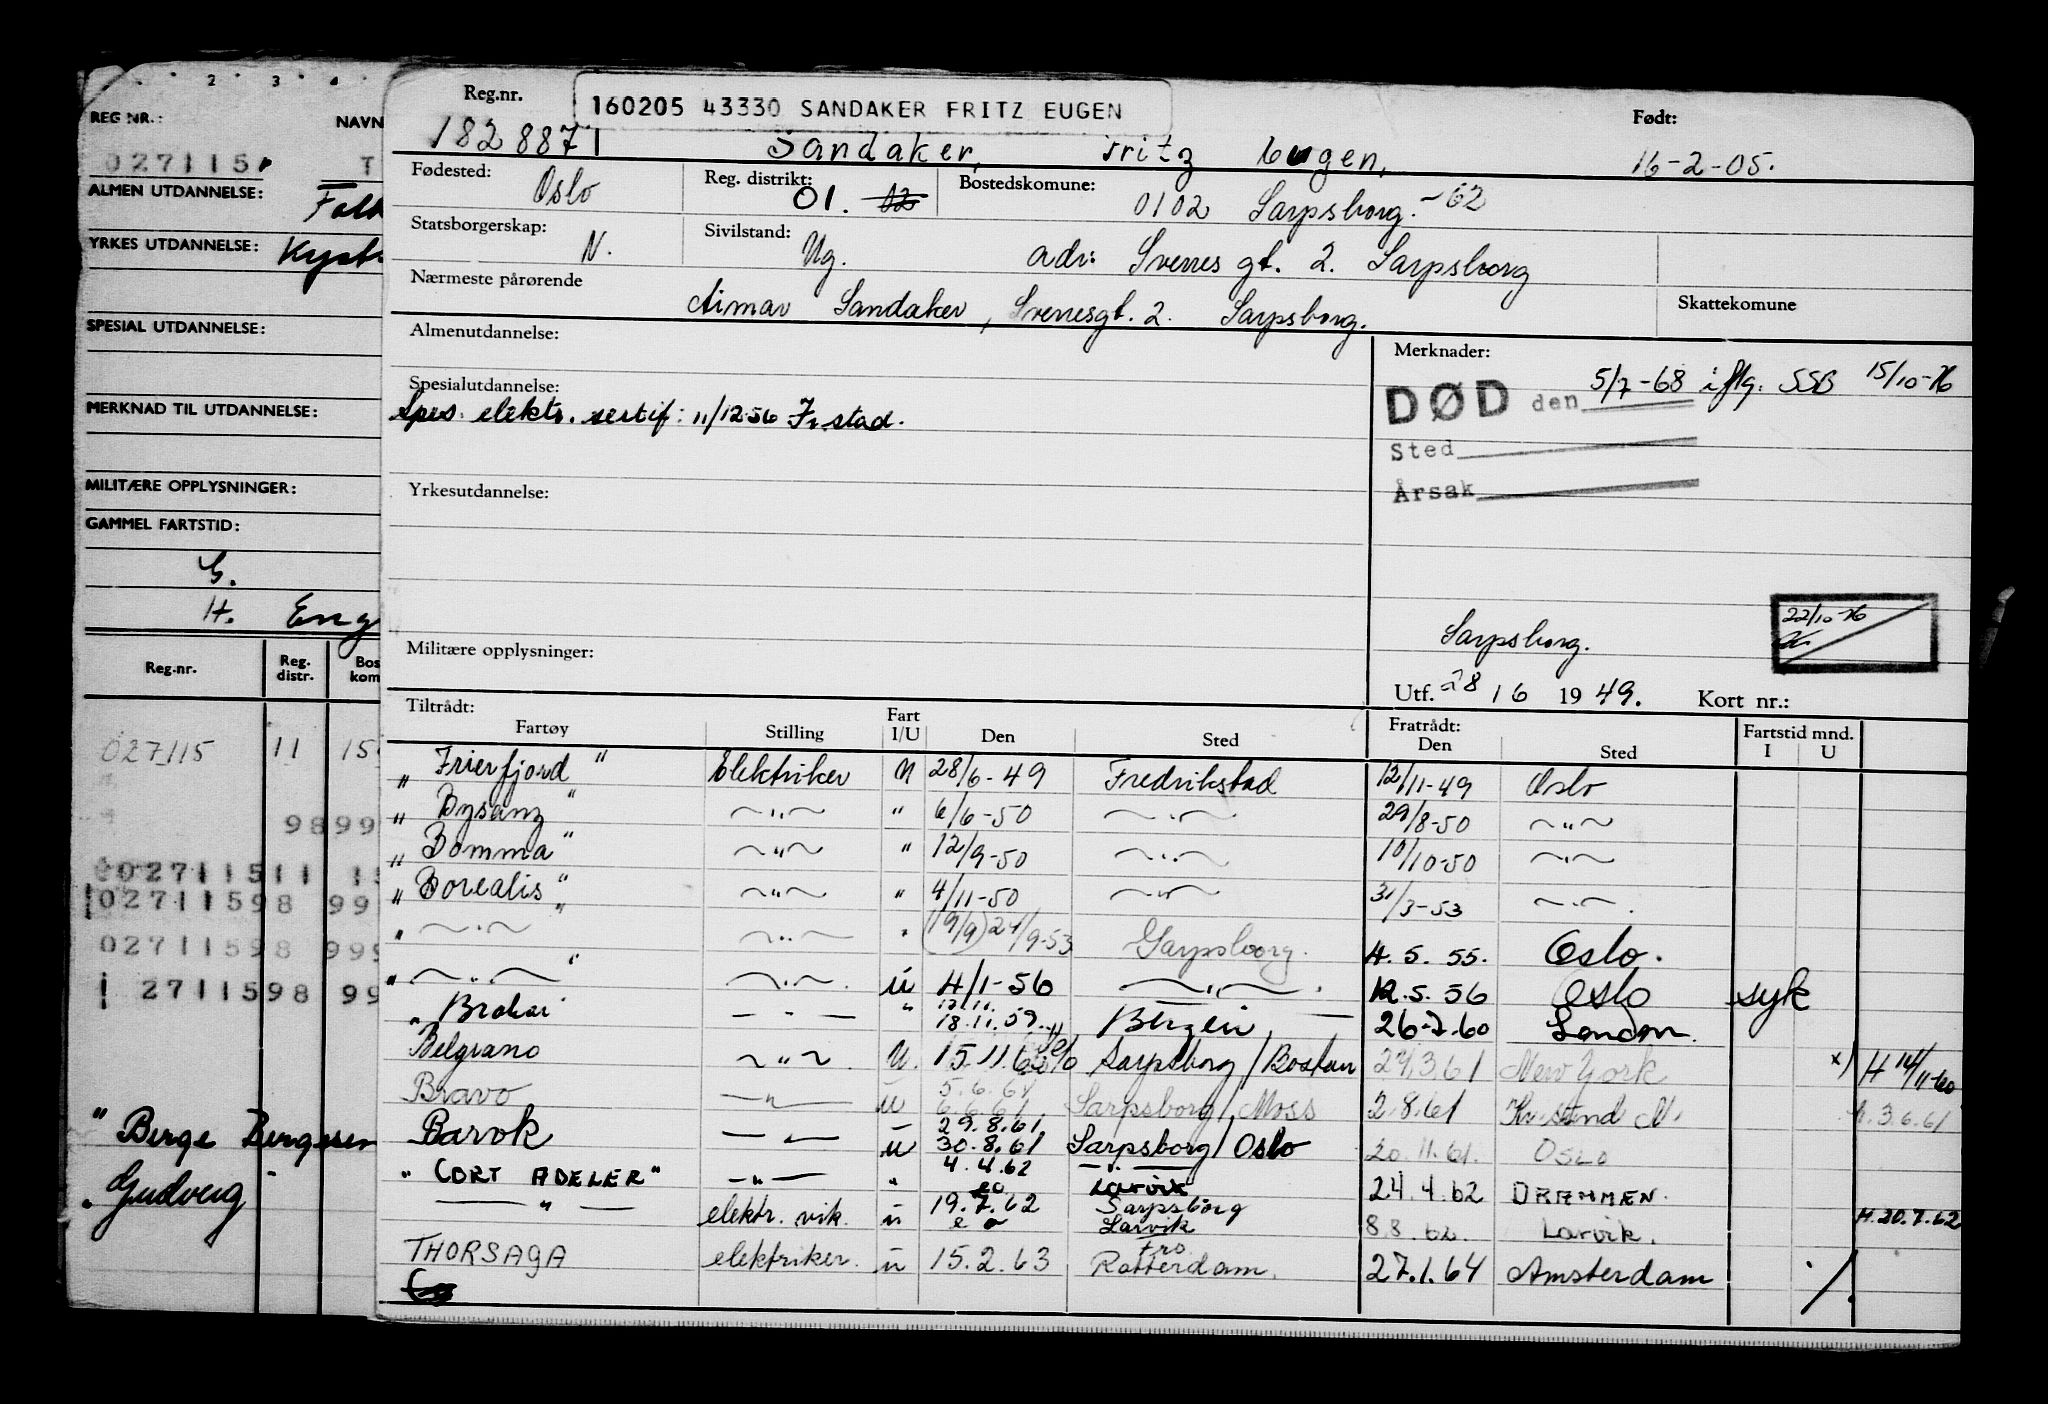 2 3 4
REG NR.: NAVN
0271151 T
ALMEN UTDANNELSE:
YRKES UTDANNELSE:
SPESIAL UTDANNELSE:
MERKNAD TIL UTDANNELSE:
MILITÆRE OPPLYSNINGER:
GAMMEL FARTSTID:
H. Eng
Reg.nr. Reg. distr. Bos kom
027115 11 15
9899
0271151 1 15
02711598 99
02711598 999
2711598 99
"Berge Bergesen
"Gudveig"
Reg.nr. 160205 43330 SANDAKER FRITZ EUGEN Født:
1828871 Sandaker, Fritz Eugen, 16-2-05.
Fødested: Oslo Reg. distrikt: 01. 02 Bostedskomune: 0102 Sarpsborg. -62
Statsborgerskap: N. Sivilstand: Ug. adr: Sverres gt. 2. Sarpsborg
Nærmeste pårørende Aimar Sandaker, Sverresgt. 2. Sarpsborg. Skattekomune
Almenutdannelse: Merknader:
DØD den 5/7-68 iflg. SSB 15/10-76
Spesialutdannelse:
Spes. elektr. sertif: 11/12-56 Fr.stad.
Sted
Årsak
Yrkesutdannelse:
22/10-76
Sarpsborg.
Militære opplysninger:
Utf. 28 / 6 1949. Kort nr.:
Tiltrådt: Fratrådt: Fartstid mnd.
Fartøy Stilling Fart I/U Den Sted Den Sted I U
"Frierfjord" Elektriker U 28/6-49 Fredrikstad 12/11-49 Oslo
"Bysanz" —"— " 6/6-50 —"— 29/8-50 —"—
"Bomma" —"— " 12/9-50 —"— 10/10-50 —"—
"Borealis" —"— " 4/11-50 —"— 31/3-53 —"—.
" —"— " —"— " (19/9) 24/9-53 Sarpsborg. 4.5.55. Oslo.
" —"— " —"— u 4/1-56 —"—. 12.5.56 Oslo syk
"Brakar —"— " 18.11.59 Bergen 26-7.60 London.
Belgrano —"— U. 15.11.60 Sarpsborg/Boston 24.3.61 New York x) H 14/11-60
Bravo —"— u 5.6.61 6.6.61 Sarpsborg/Moss 2.8.61 Kr.sund N. h. 3.6.61
Barok —"— u 29.8.61. 30.8.61 Sarpsborg/Oslo 20.11.61. OSLO
"CORT ADELER" —"— " 4.4.62 Larvik 24.4.62 DRAMMEN.
—"— elektr. vik. u 19.7.62 Sarpsborg Larvik 8.8.62. Larvik. H. 20.7.62
THORSAGA elektriker. u 15.2.63 fro Rotterdam. 27.1.64 Amsterdam